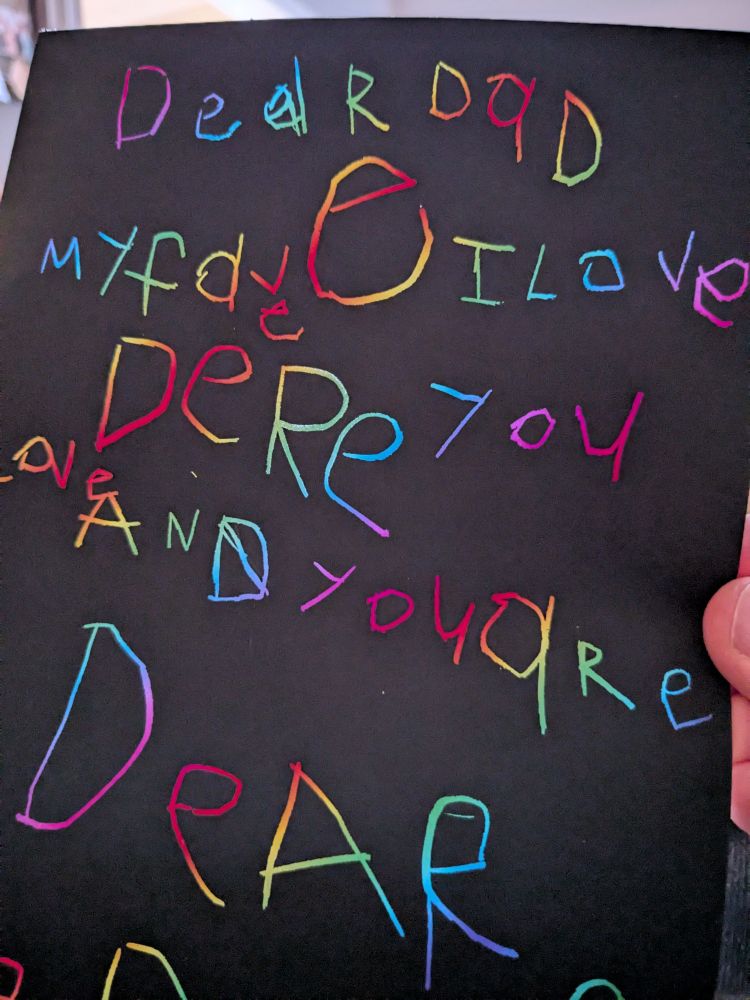 Dear DaD
MY fave e I LOVe
DeRe YOU
Love
AND YOU are
DeAR